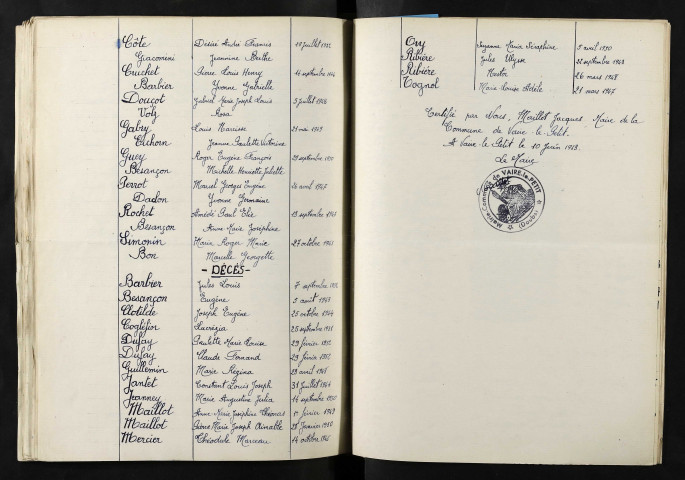 Côte Désiré André Francis 10 juillet 1952
Giacomini Jeannine Berthe
Cruchet Pierre Louis Henry 14 septembre
Barbier Yvonne Gabrielle
Douçot Gabriel Marie Joseph Louis 3 juillet
Volz Rosa
Gabry Louis Narcisse 21 mai 1949
Eichorn Jeanne Paulette Victorine
Guey Roger Eugène François septembre
Besançon Marthelle Henriette Juliette
Perrot Marcel Georges Eugène 26 avril 1947
Dadon Yvonne Germaine
Rochet Amédée Paul Elie 13 septembre
Besançon Anne Marie Joséphine
Simonin Marie Roger Marie 27 octobre
Bon Marcelle Georgette
- DÉCÈS -
Barbier Jules Louis 7 septembre
Besançon Eugène 5 août
Clotilde Joseph Eugène 25 octobre 1944
Coglefior Lucrézia 25 septembre
Dufay Paulette Marie Louise 29 février 1952
Dufay Claude Fernand 29 février 1952
Guillemin Marie Régina 23 avril
Jantet Constant Louis Joseph 31 juillet 1944
Jeanney Marie Augustine Julia 14 septembre 1950
Maillot Anne Marie Joséphine 1er février 1949
Maillot Pierre Marie Joseph Aimable 28 janvier 1950
Mercier Théodule Marceau 14 octobre
Ory Suzanne Maria Séraphine 5 avril 1950
Ribière Jules Ulysse septembre
Ribière Nestor 26 mars 1948
Tognol Marie Louise Adèle 21 mars 1947
Certifié par Nous, Maillot Jacques, Maire de la
Commune de Vaire-le-Petit.
A Vaire-le-Petit le 10 juin 1953.
Le Maire
Mairie de la Commune de VAIRE-le-PETIT (Doubs)